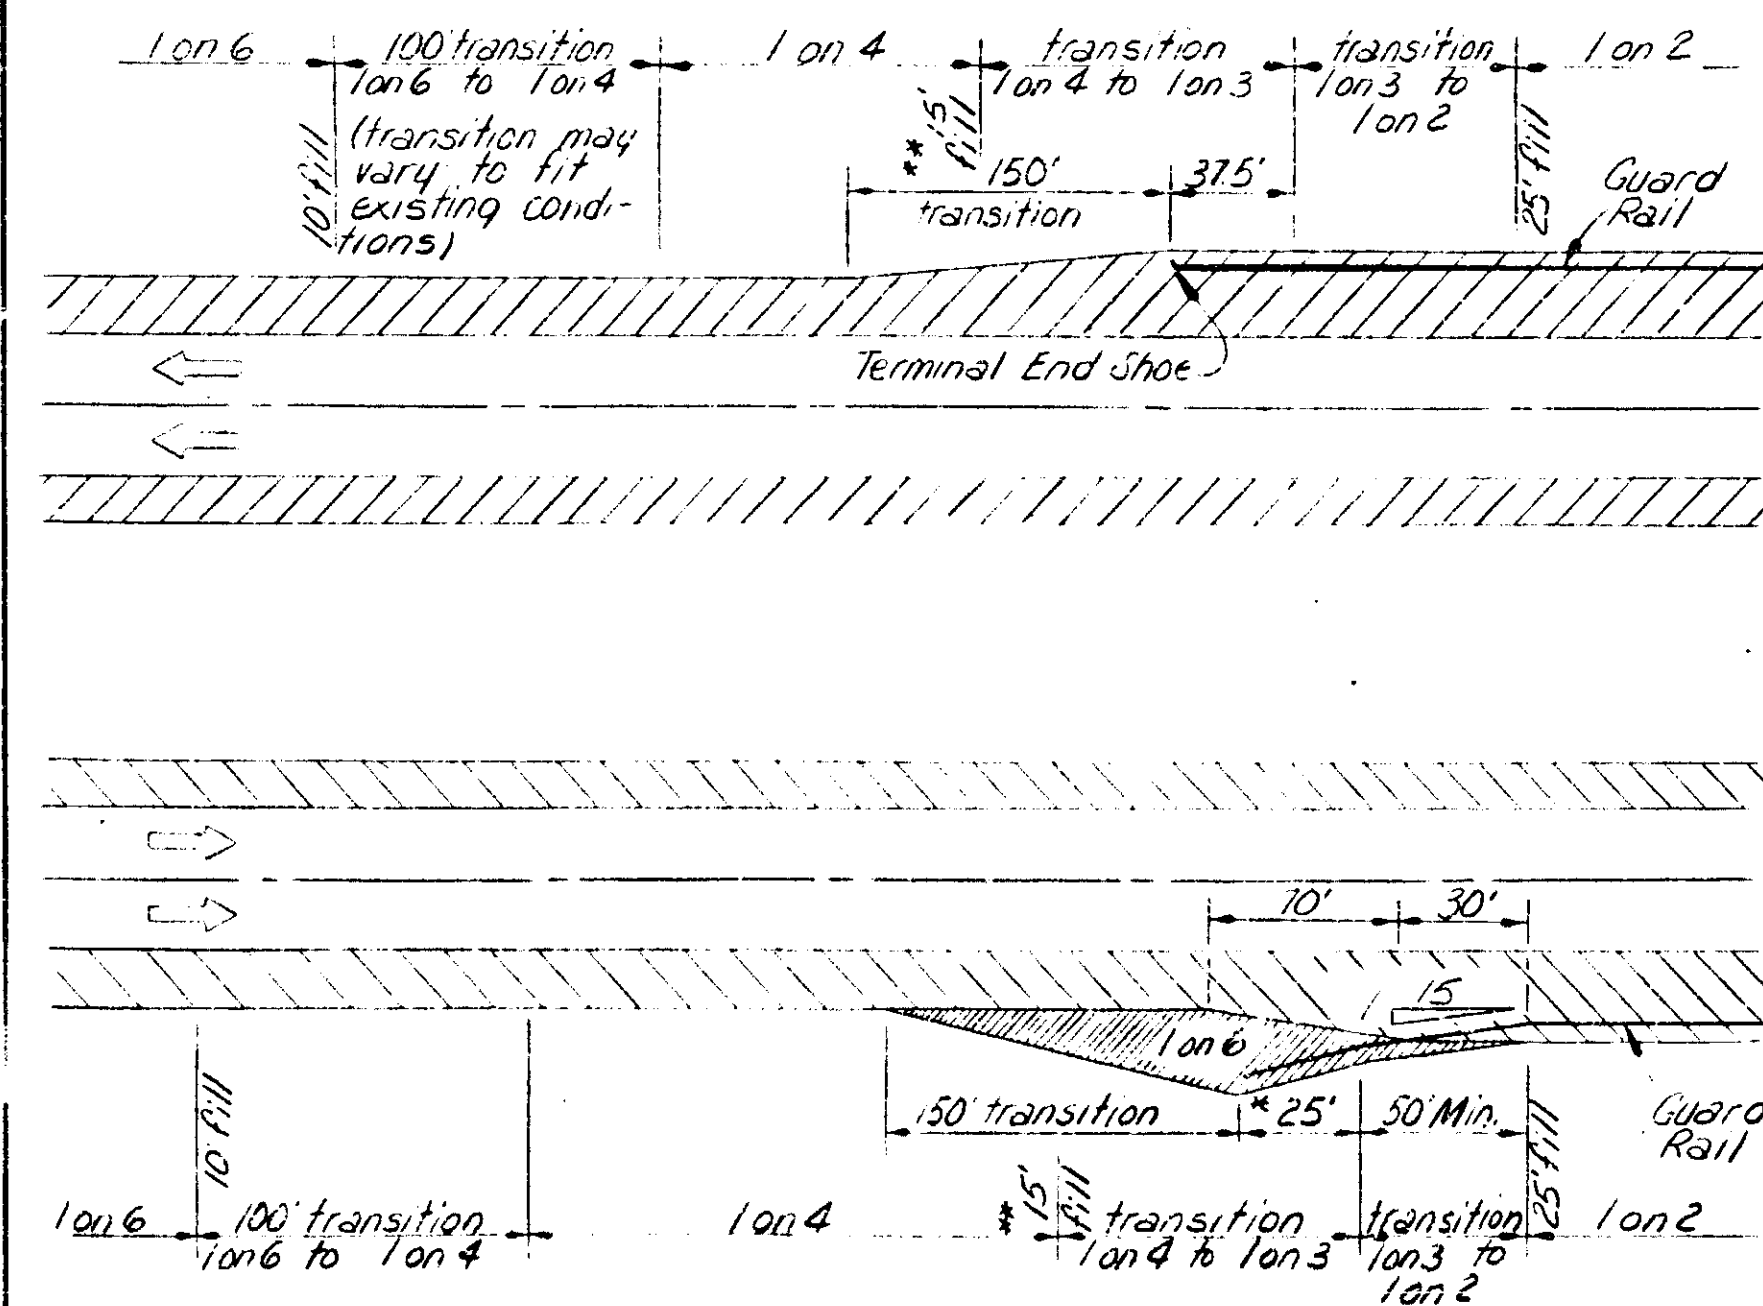 1 on 6
100' transition
1 on 6 to 1 on 4
(transition may
vary to fit
existing condi-
tions)
1 on 4
transition
1 on 4 to 1 on 3
transition
1 on 3 to
1 on 2
1 on 2
10' fill
** 15'
fill
25' fill
150'
transition
37.5'
Guard
Rail
Terminal End Shoe
70'
30'
15
1 on 6
150' transition
* 25'
50' Min.
Guard
Rail
10' fill
** 15'
fill
25' fill
1 on 6
100' transition
1 on 6 to 1 on 4
1 on 4
transition
1 on 4 to 1 on 3
transition
1 on 3 to
1 on 2
1 on 2